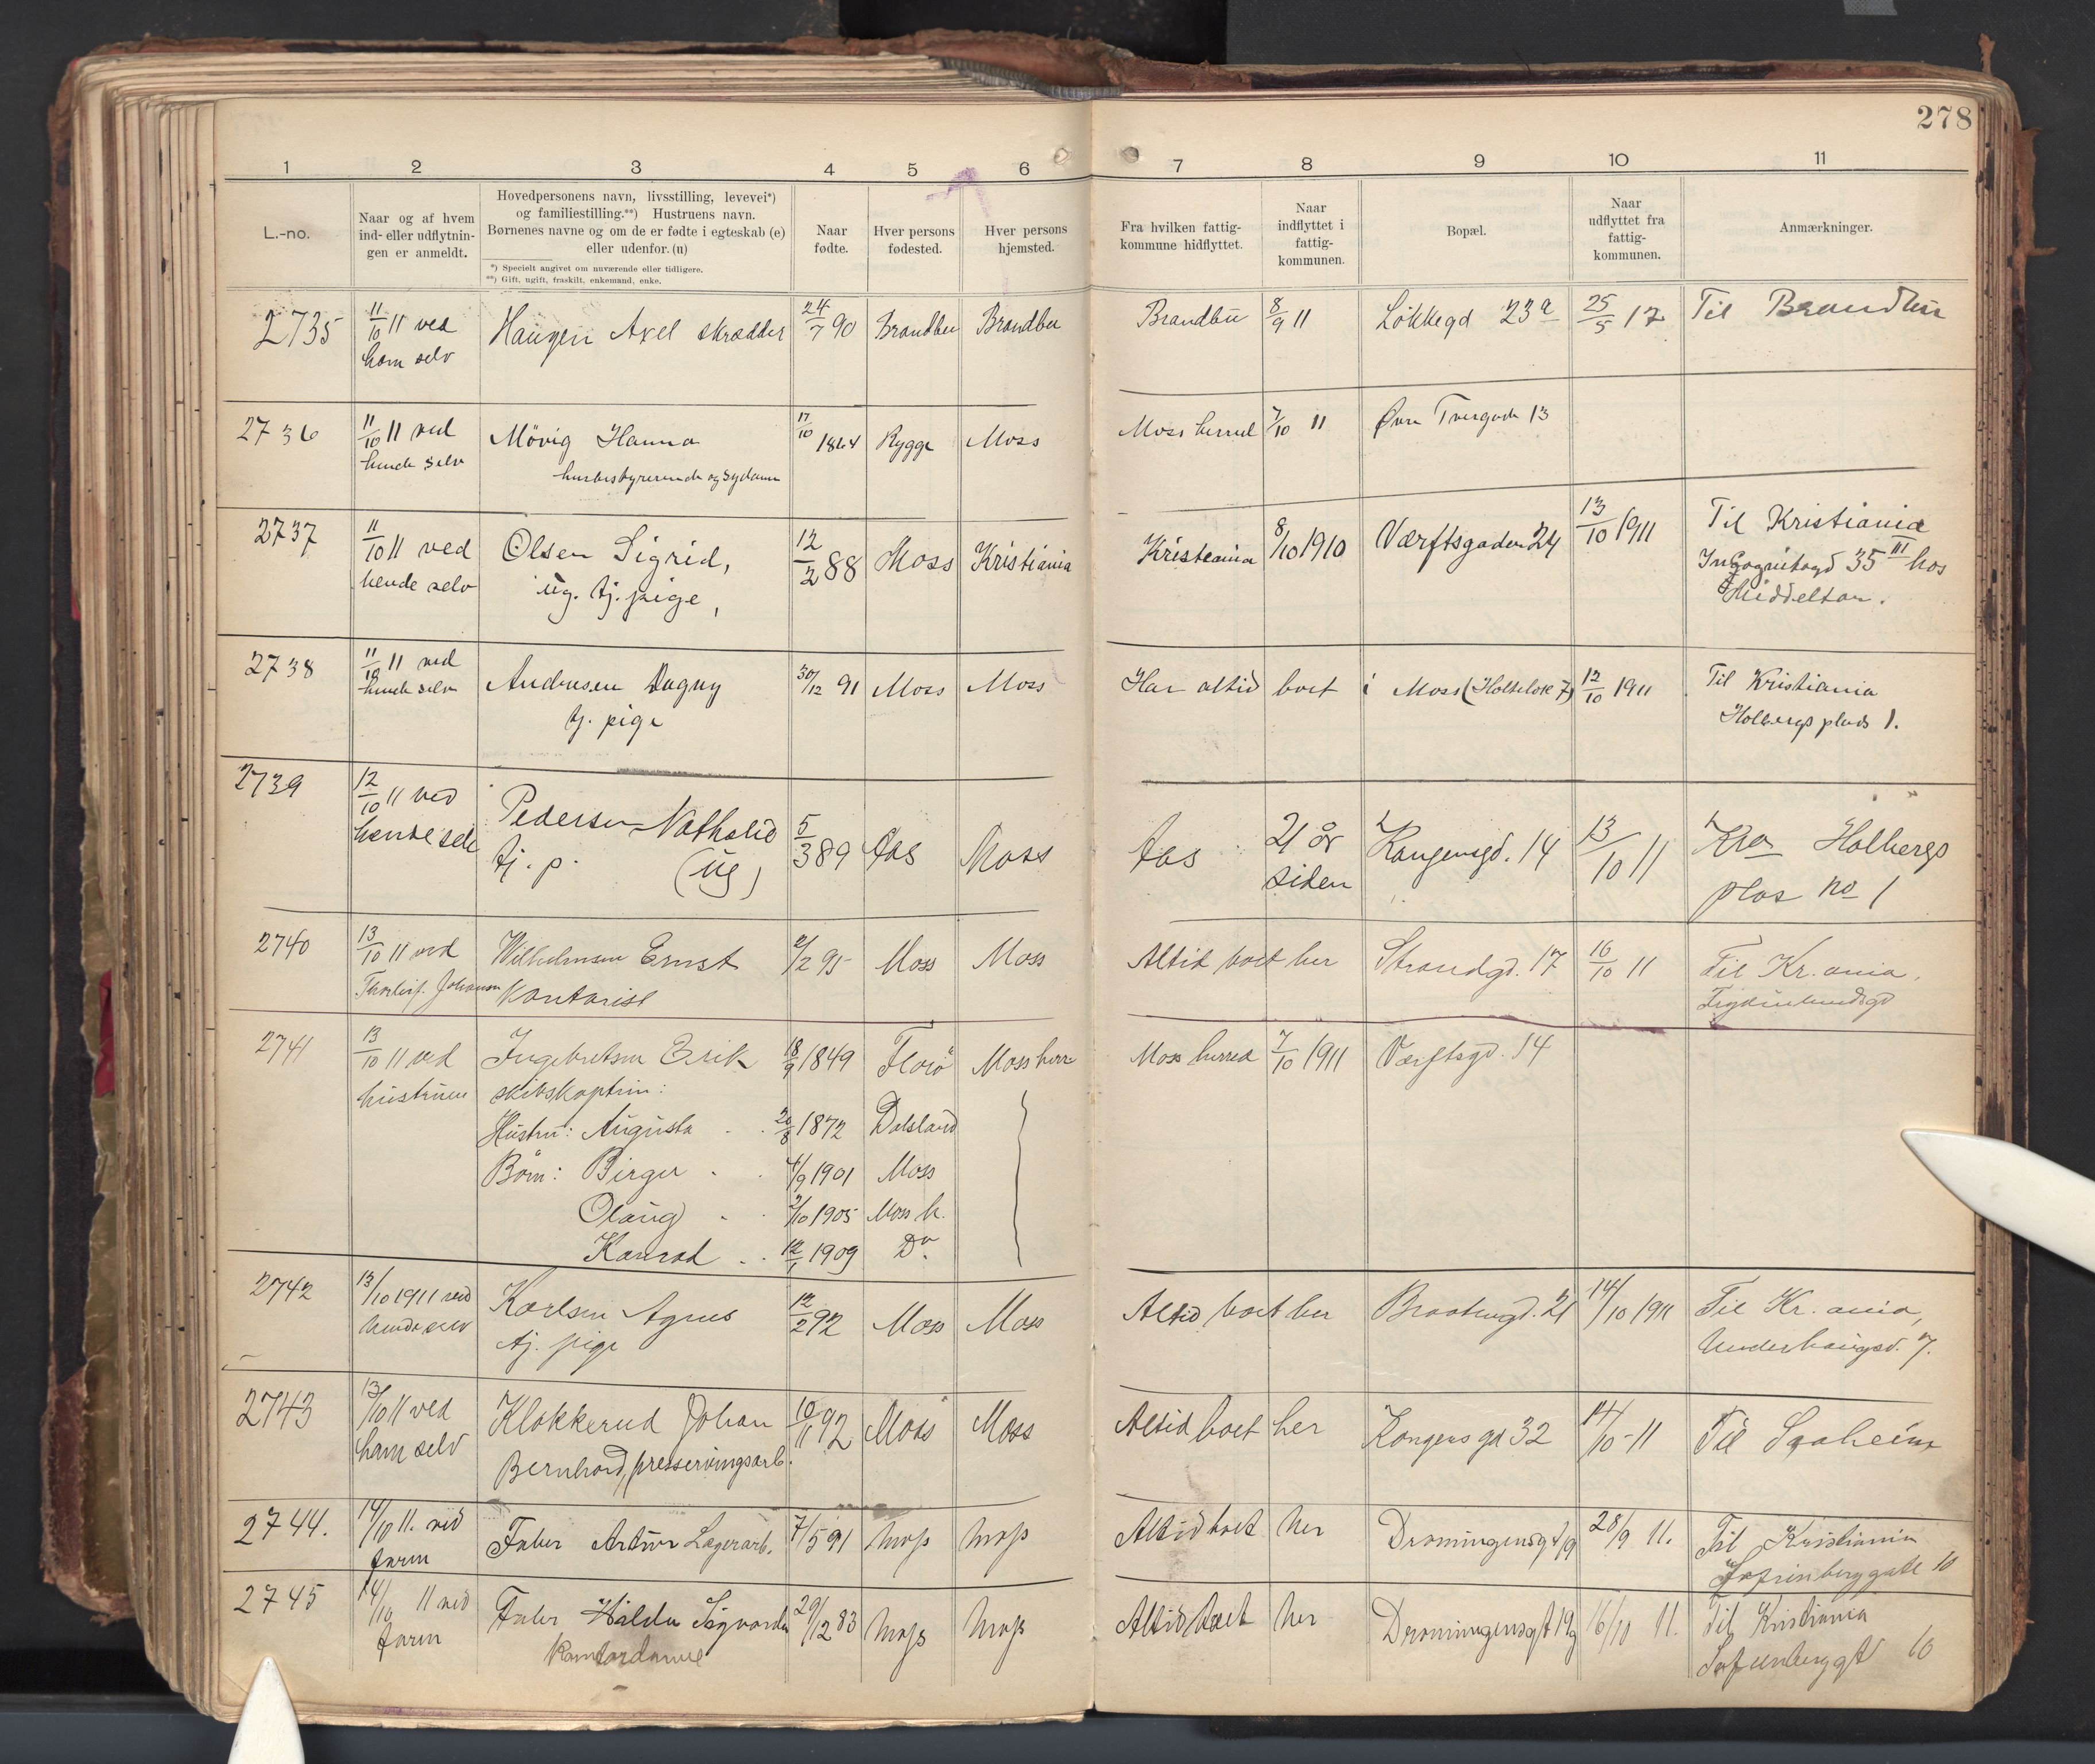 278
1 2 3 4 5 6 7 8 9 10 11
L.-no.
Naar og af hvem
ind- eller udflytnin-
gen er anmeldt.
Hovedpersonens navn, livsstilling, levevei*)
og familiestilling.**) Hustruens navn.
Børnenes navne og om de er fødte i egteskab (e)
eller udenfor. (u)
*) Specielt angivet om nuværende eller tidligere.
**) Gift, ugift, fraskilt, enkemand, enke.
Naar
fødte.
Hver persons
fødested.
Hver persons
hjemsted.
Fra hvilken fattig-
kommune hidflyttet.
Naar
indflyttet i
fattig-
kommunen.
Bopæl.
Naar
udflyttet fra
fattig-
kommunen.
Anmærkninger.
2735 11/10 11 ved Haugen Axel skrædder 24/7 90 Brandbu Brandbu Brandbu 8/9 11 Løkkegd 23a 25/5 12 Til Brandbu
ham selv
2736 11/10 11 ved Mövig Hanna 17/10 1864 Rygge Moss Moss herred 7/10 11 Øvre Tvergade 13
hende selv husbestyrerinde og sydame
2737 11/10 11 ved Olsen Sigrid, 12/2 88 Moss Kristiania Kristiania 8/10 1910 Værftsgaden 24 13/10 1911 Til Kristiania
hende selv ug. tj. pige, Incognitogd 35 III hos
Middelton.
2738 11/10 11 ved Andresen Dagny 30/12 91 Moss Moss Har altid boet i Moss 12/10 1911 Til Kristiania
hende selv tj. pige Holbergs plads 1.
2739 12/10 11 ved Pedersen Nathalie 5/3 89 Aas Moss Aas 21 år Kongensgd. 14 13/10 11 Kra Holbergs
hende selv tj. p. (ug) siden plas no 1
2740 13/10 11 ved Wilhelmsen Ernst 2/2 95 Moss Moss Altid boet her Strandgd. 17 16/10 11 Til Kr.ania.
Johansen Kontorist
2741 13/10 11 ved Ingebretsen Erik 18/9 1849 Florö Moss herr Moss herred 7/10 1911 Værftsgd. 14
hustruen skibskaptein:
Hustru: Augusta 20/8 1872 Dalsland
Börn: Birger 4/9 1901 Moss
Olaug 2/10 1905 Moss h.
Konrad 12/1 1909 Do.
2742 13/10 1911 ved Karlsen Agnes 12/2 92 Moss Moss Altid boet her Braatengd. 21 14/10 1911 Til Kr.ania,
hende selv tj. pige Underhaugsv. 7.
2743 13/10 11 ved Klokkerud Johan 10/11 92 Moss Moss Altid boet her Kongens gd 32 14/10-11 Til Saaheim
ham selv Bernhard, presservingsarb.
2744. 14/10 11. ved Faber Artur Lagerarb. 7/5 91 Moss Moss Altid boet her Dronningensgt 19 28/9 11. Til Kristiania
faren Sofienberggate 10
2745 14/10 11 ved Faber Hilda Sigvarda 29/12 83 Moss Moss Altid boet her Dronningensgt 19 16/10 11. Til Kristiania
faren Kontordame Sofienberggt 10